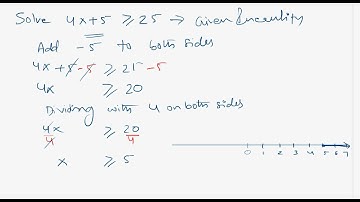 Solve 4x+5 ≥ 25 → Given Inequality
Add -5 to both sides
4x+5-5 ≥ 25-5
4x ≥ 20
Dividing with 4 on both sides
4x/4 ≥ 20/4
x ≥ 5
0 1 2 3 4 5 6 7